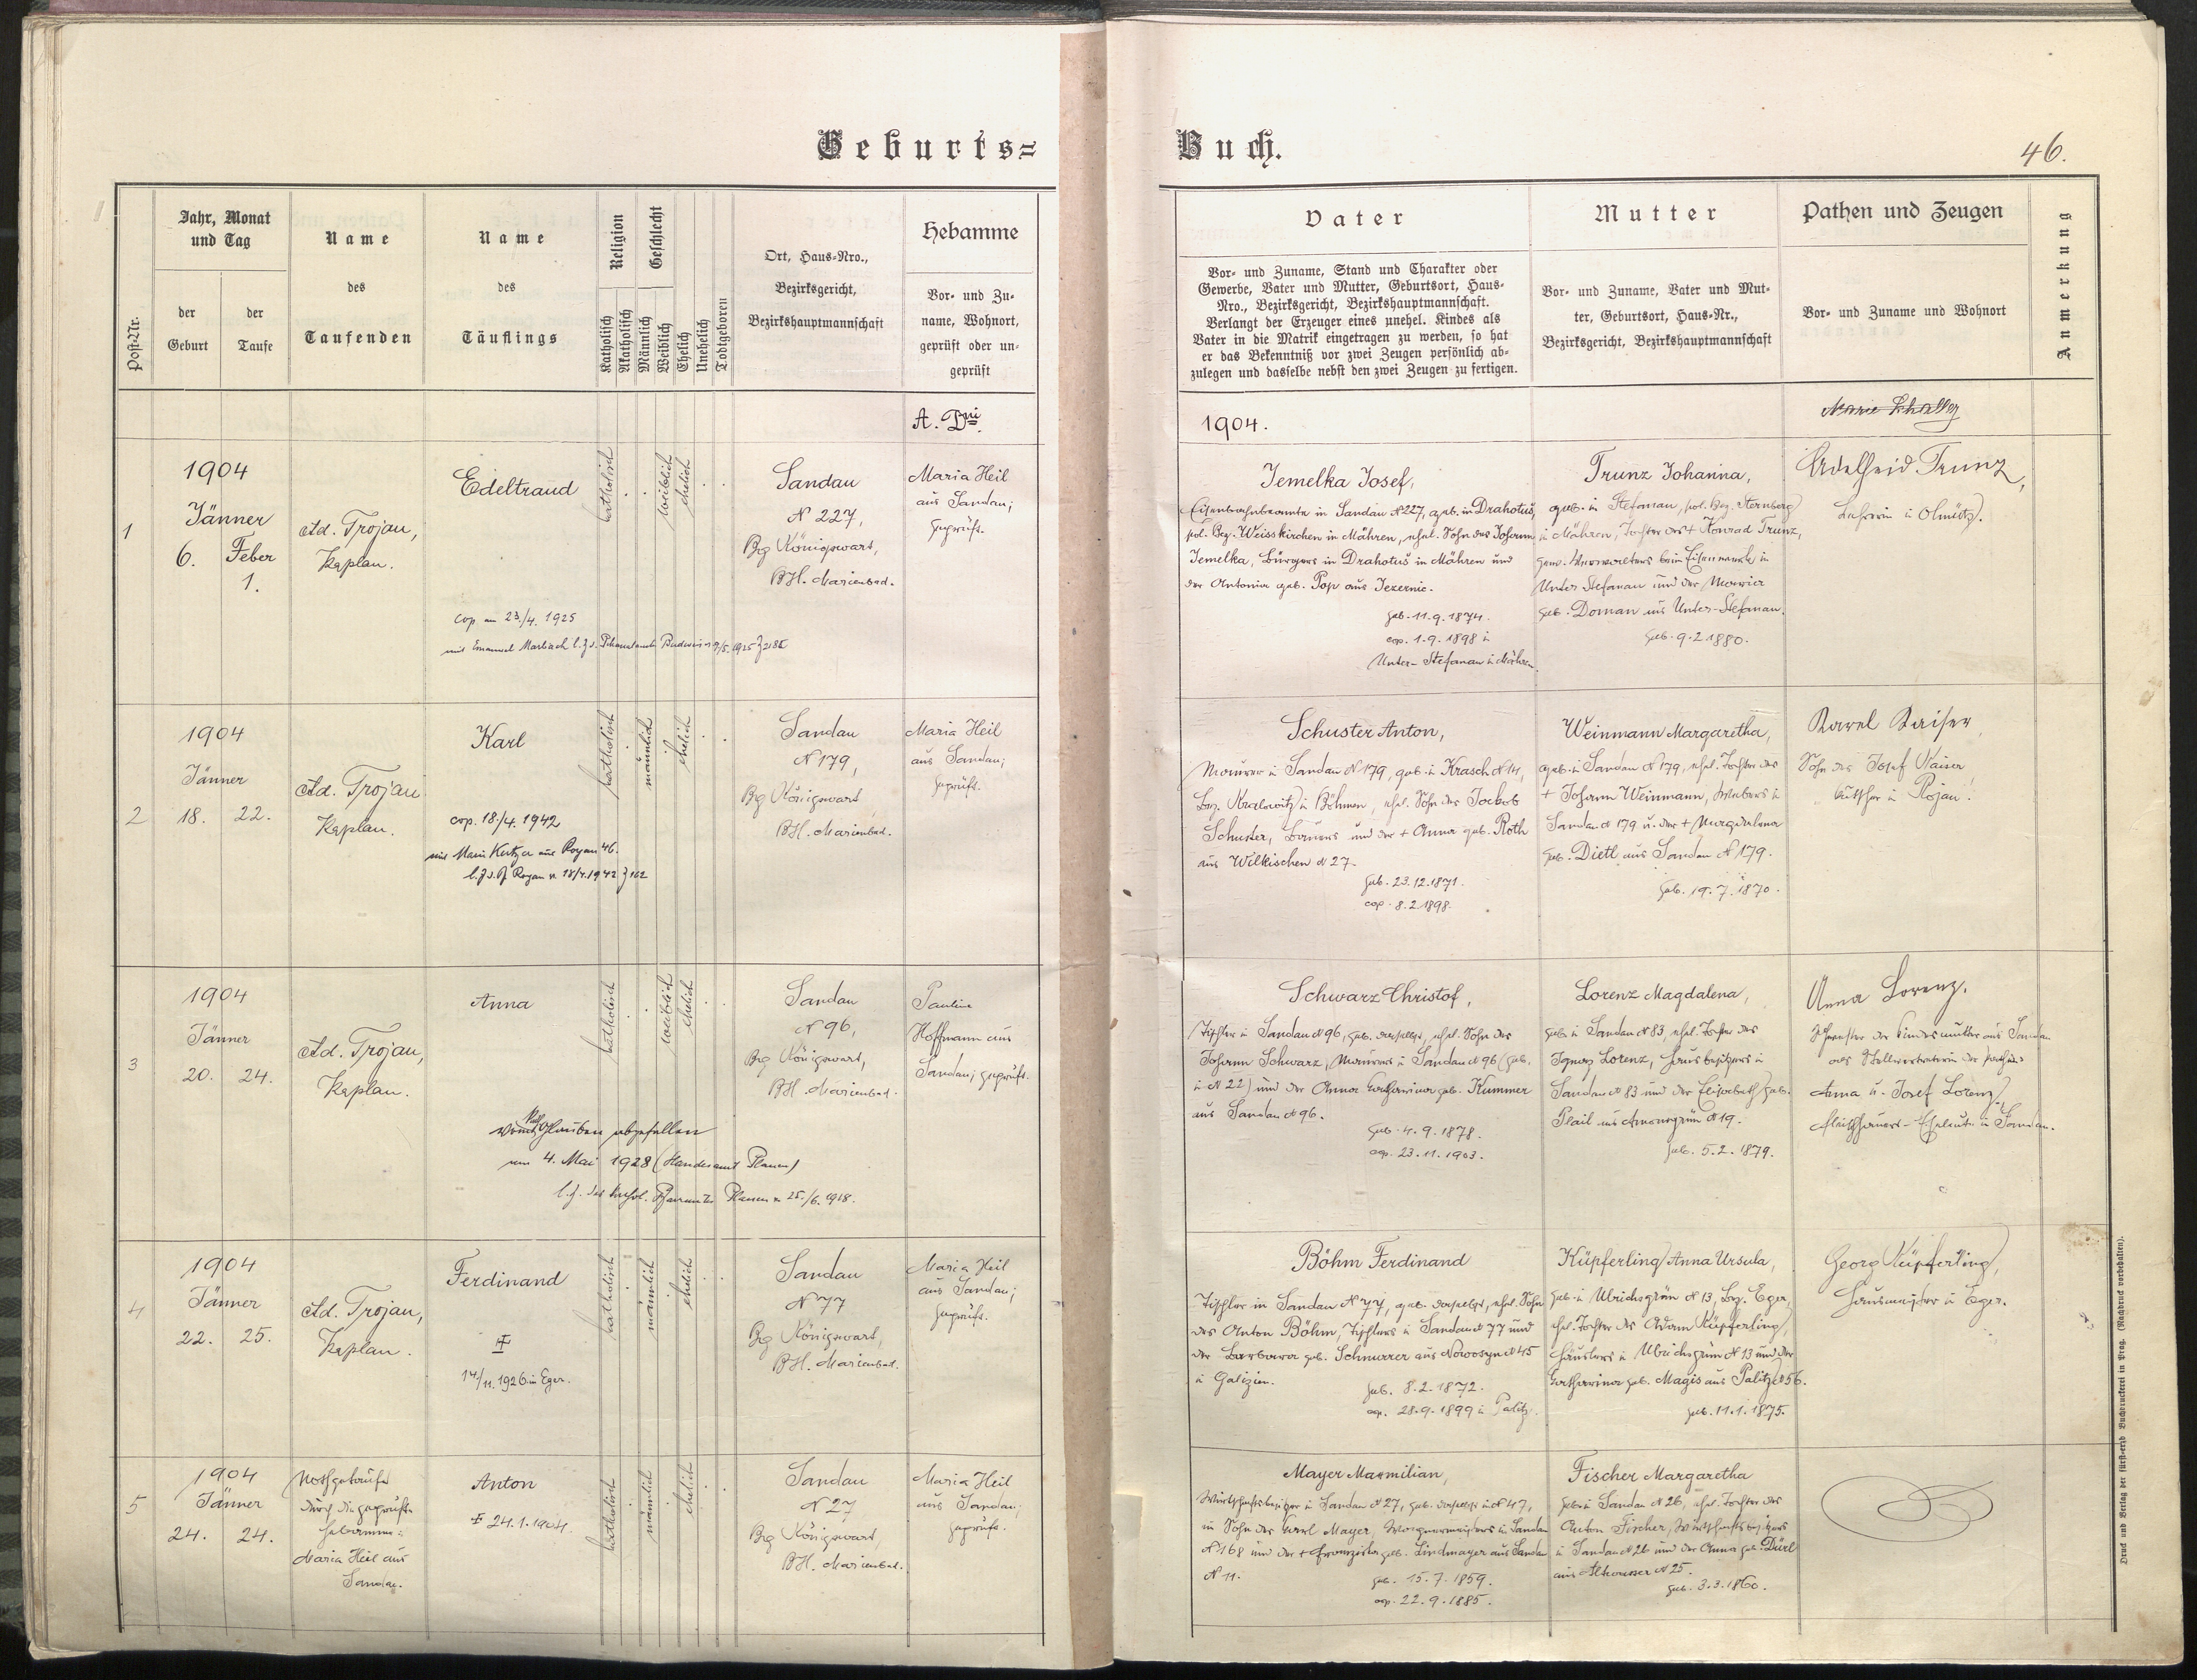 Geburts=
Buch.
46.
Post-Nr.
Jahr, Monat
und Tag
der
Geburt
der
Taufe
Name
des
Taufenden
Name
des
Täuflings
Religion
Katholisch
Akatholisch
Geschlecht
Männlich
Weiblich
Ehelich
Unehelich
Todtgeboren
Ort, Haus-Nro.,
Bezirksgericht,
Bezirkshauptmannschaft
Hebamme
Vor- und Zu-
name, Wohnort,
geprüft oder un-
geprüft
Vater
Vor- und Zuname, Stand und Charakter oder
Gewerbe, Vater und Mutter, Geburtsort, Haus-
Nro., Bezirksgericht, Bezirkshauptmannschaft.
Verlangt der Erzeuger eines unehel. Kindes als
Vater in die Matrik eingetragen zu werden, so hat
er das Bekenntniß vor zwei Zeugen persönlich ab-
zulegen und dasselbe nebst den zwei Zeugen zu fertigen.
Mutter
Vor- und Zuname, Vater und Mut-
ter, Geburtsort, Haus-Nr.,
Bezirksgericht, Bezirkshauptmannschaft
Pathen und Zeugen
Vor- und Zuname und Wohnort
Anmerkung
A. Dni
1904.
1
1904
Jänner
6. Feber
1.
Ad. Trojan,
Kaplan.
Edeltraud
cop am 23/4. 1925
katholisch
weiblich
ehelich
Sandau
N 227,
Bg Königswart,
BH. Marienbad.
Maria Heil
aus Sandau;
geprüft.
Jemelka Josef,
Eisenbahnbeamte in Sandau N 227, geb. in Drahotuš,
pol. Bez. Weisskirchen in Mähren, ehel. Sohn des Johann
Jemelka, Bürgers in Drahotuš in Mähren und
der Antonia geb. Pop aus Jezernic.
geb. 11.9.1874.
cop. 1.9.1898 in
Unter-Stefanau in Mähren.
Trunz Johanna,
geb. in Stefanau, pol. Bez. Sternberg
in Mähren, Tochter des + Konrad Trunz,
gew. Verwalters beim Eisenwerke in
Unter Stefanau und der Maria
geb. Doman aus Unter-Stefanau.
geb. 9.2.1880.
Adelheid Trunz,
Lehrerin in Olmütz.
2
1904
Jänner
18. 22.
Ad. Trojan
Kaplan.
Karl
cop. 18/4. 1942
katholisch
männlich
ehelich
Sandau
N 179,
Bg Königswart
BH. Marienbad.
Maria Heil
aus Sandau;
geprüft.
Schuster Anton,
Maurer in Sandau N 179, geb. in Krasch N 14,
Bez. Kralowitz in Böhmen, ehel. Sohn des Jakob
Schuster, Bauers und der + Anna geb. Roth
aus Wilkischen N 27.
geb. 23.12.1871.
cop. 8.2.1898.
Weinmann Margaretha,
geb. in Sandau N 179, ehel. Tochter des
+ Johann Weinmann, Webers in
Sandau N 179 u. der + Magdalena
geb. Dietl aus Sandau N 179.
geb. 19.7.1870.
Karel Kaiser,
Sohn des Josef Kaiser
Kutscher in Rojau.
3
1904
Jänner
20. 24.
Ad. Trojan,
Kaplan.
Anna
Glauben abgefallen
am 4. Mai 1928 (Standesamt Plauen)
katholisch
weiblich
ehelich
Sandau
N 96,
Bg Königswart,
BH. Marienbad.
Pauline
Hoffmann aus
Sandau; geprüft.
Schwarz Christof,
Tischler in Sandau N 96, geb. daselbst, ehel. Sohn des
Johann Schwarz, Maurers in Sandau N 96 (geb.
in N 22) und der Anna Katharina geb. Kummer
aus Sandau N 96.
geb. 4.9.1878.
cop. 23.11.1903.
Lorenz Magdalena,
geb. in Sandau N 83, ehel. Tochter des
Ignaz Lorenz, Hausbesitzers in
Sandau N 83 und der Elisabeth geb.
Plail aus Amonsgrün N 19.
geb. 5.2.1879.
Anna Lorenz,
Schwester der Kindesmutter aus Sandau
als Stellvertreterin der Pathin:
Anna u. Josef Lorenz,
Fleischhauers-Eheleute in Sandau.
4
1904
Jänner
22. 25.
Ad. Trojan,
Kaplan.
Ferdinand
14/11. 1926 in Eger.
katholisch
männlich
ehelich
Sandau
N 77
Bg Königswart,
BH. Marienbad.
Maria Heil
aus Sandau;
geprüft.
Böhm Ferdinand
Tischler in Sandau N 77, geb. daselbst, ehel. Sohn
des Anton Böhm, Tischlers in Sandau N 77 und
der Barbara geb. Schnurrer aus Nowosyn N 45
in Galizien.
geb. 8.2.1872.
cop. 28.9.1899 in Palitz.
Küpferling Anna Ursula,
geb. in Ulrichsgrün N 13, Bez. Eger,
ehel. Tochter des Adam Küpferling,
Häuslers in Ulrichsgrün N 13 und der
Katharina geb. Magis aus Palitz N 56.
geb. 11.1.1875.
Georg Küpferling,
Hausmeister in Eger.
5
1904
Jänner
24. 24.
Nothgetauft
durch die geprüfte
Hebamme:
Maria Heil aus
Sandau.
Anton
+ 24.1.1904.
katholisch
männlich
ehelich
Sandau
N 27
Bg Königswart,
BH. Marienbad.
Maria Heil
aus Sandau;
geprüft.
Mayer Maxmilian,
Wirtschaftsbesitzer in Sandau N 27, geb. daselbst in N 47,
ein Sohn des Karl Mayer, Wagnermeisters in Sandau
N 168 und der + Franziska geb. Lindmayer aus Sandau
N 11.
geb. 15.7.1859.
cop. 22.9.1885.
Fischer Margaretha
geb. in Sandau N 26, ehel. Tochter des
Anton Fischer, Wirtschaftsbesitzers
in Sandau N 26 und der Anna geb. Dürl
aus Altwasser N 25.
geb. 3.3.1860.
Druck und Verlag der fürst-erzb Buchdruckerei in Prag. (Nachdruck vorbehalten).